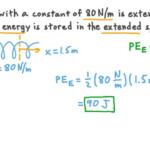 with a constant of 80 N/m is exten
energy is stored in the extended s
x=1.5m
PE
= 80N/m
PE_E = 1/2 (80 N/m)(1.5m
= 90 J